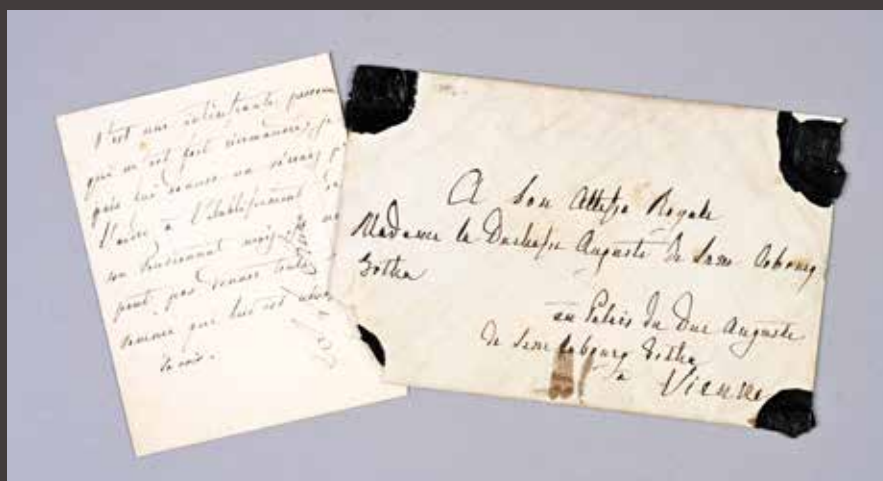 C'est une intéressante personn
qui m'est fort recommandée; je
puis lui donner un secours p
l'aider à l'établissement de
son pensionnat mais je ne
peut pas donner toute
somme que lui est néces
saire.
A Son Altesse Royale
Madame la Duchesse Auguste de Saxe Cobourg
Gotha
au Palais du Duc Auguste
de Saxe Cobourg Gotha
à Vienne